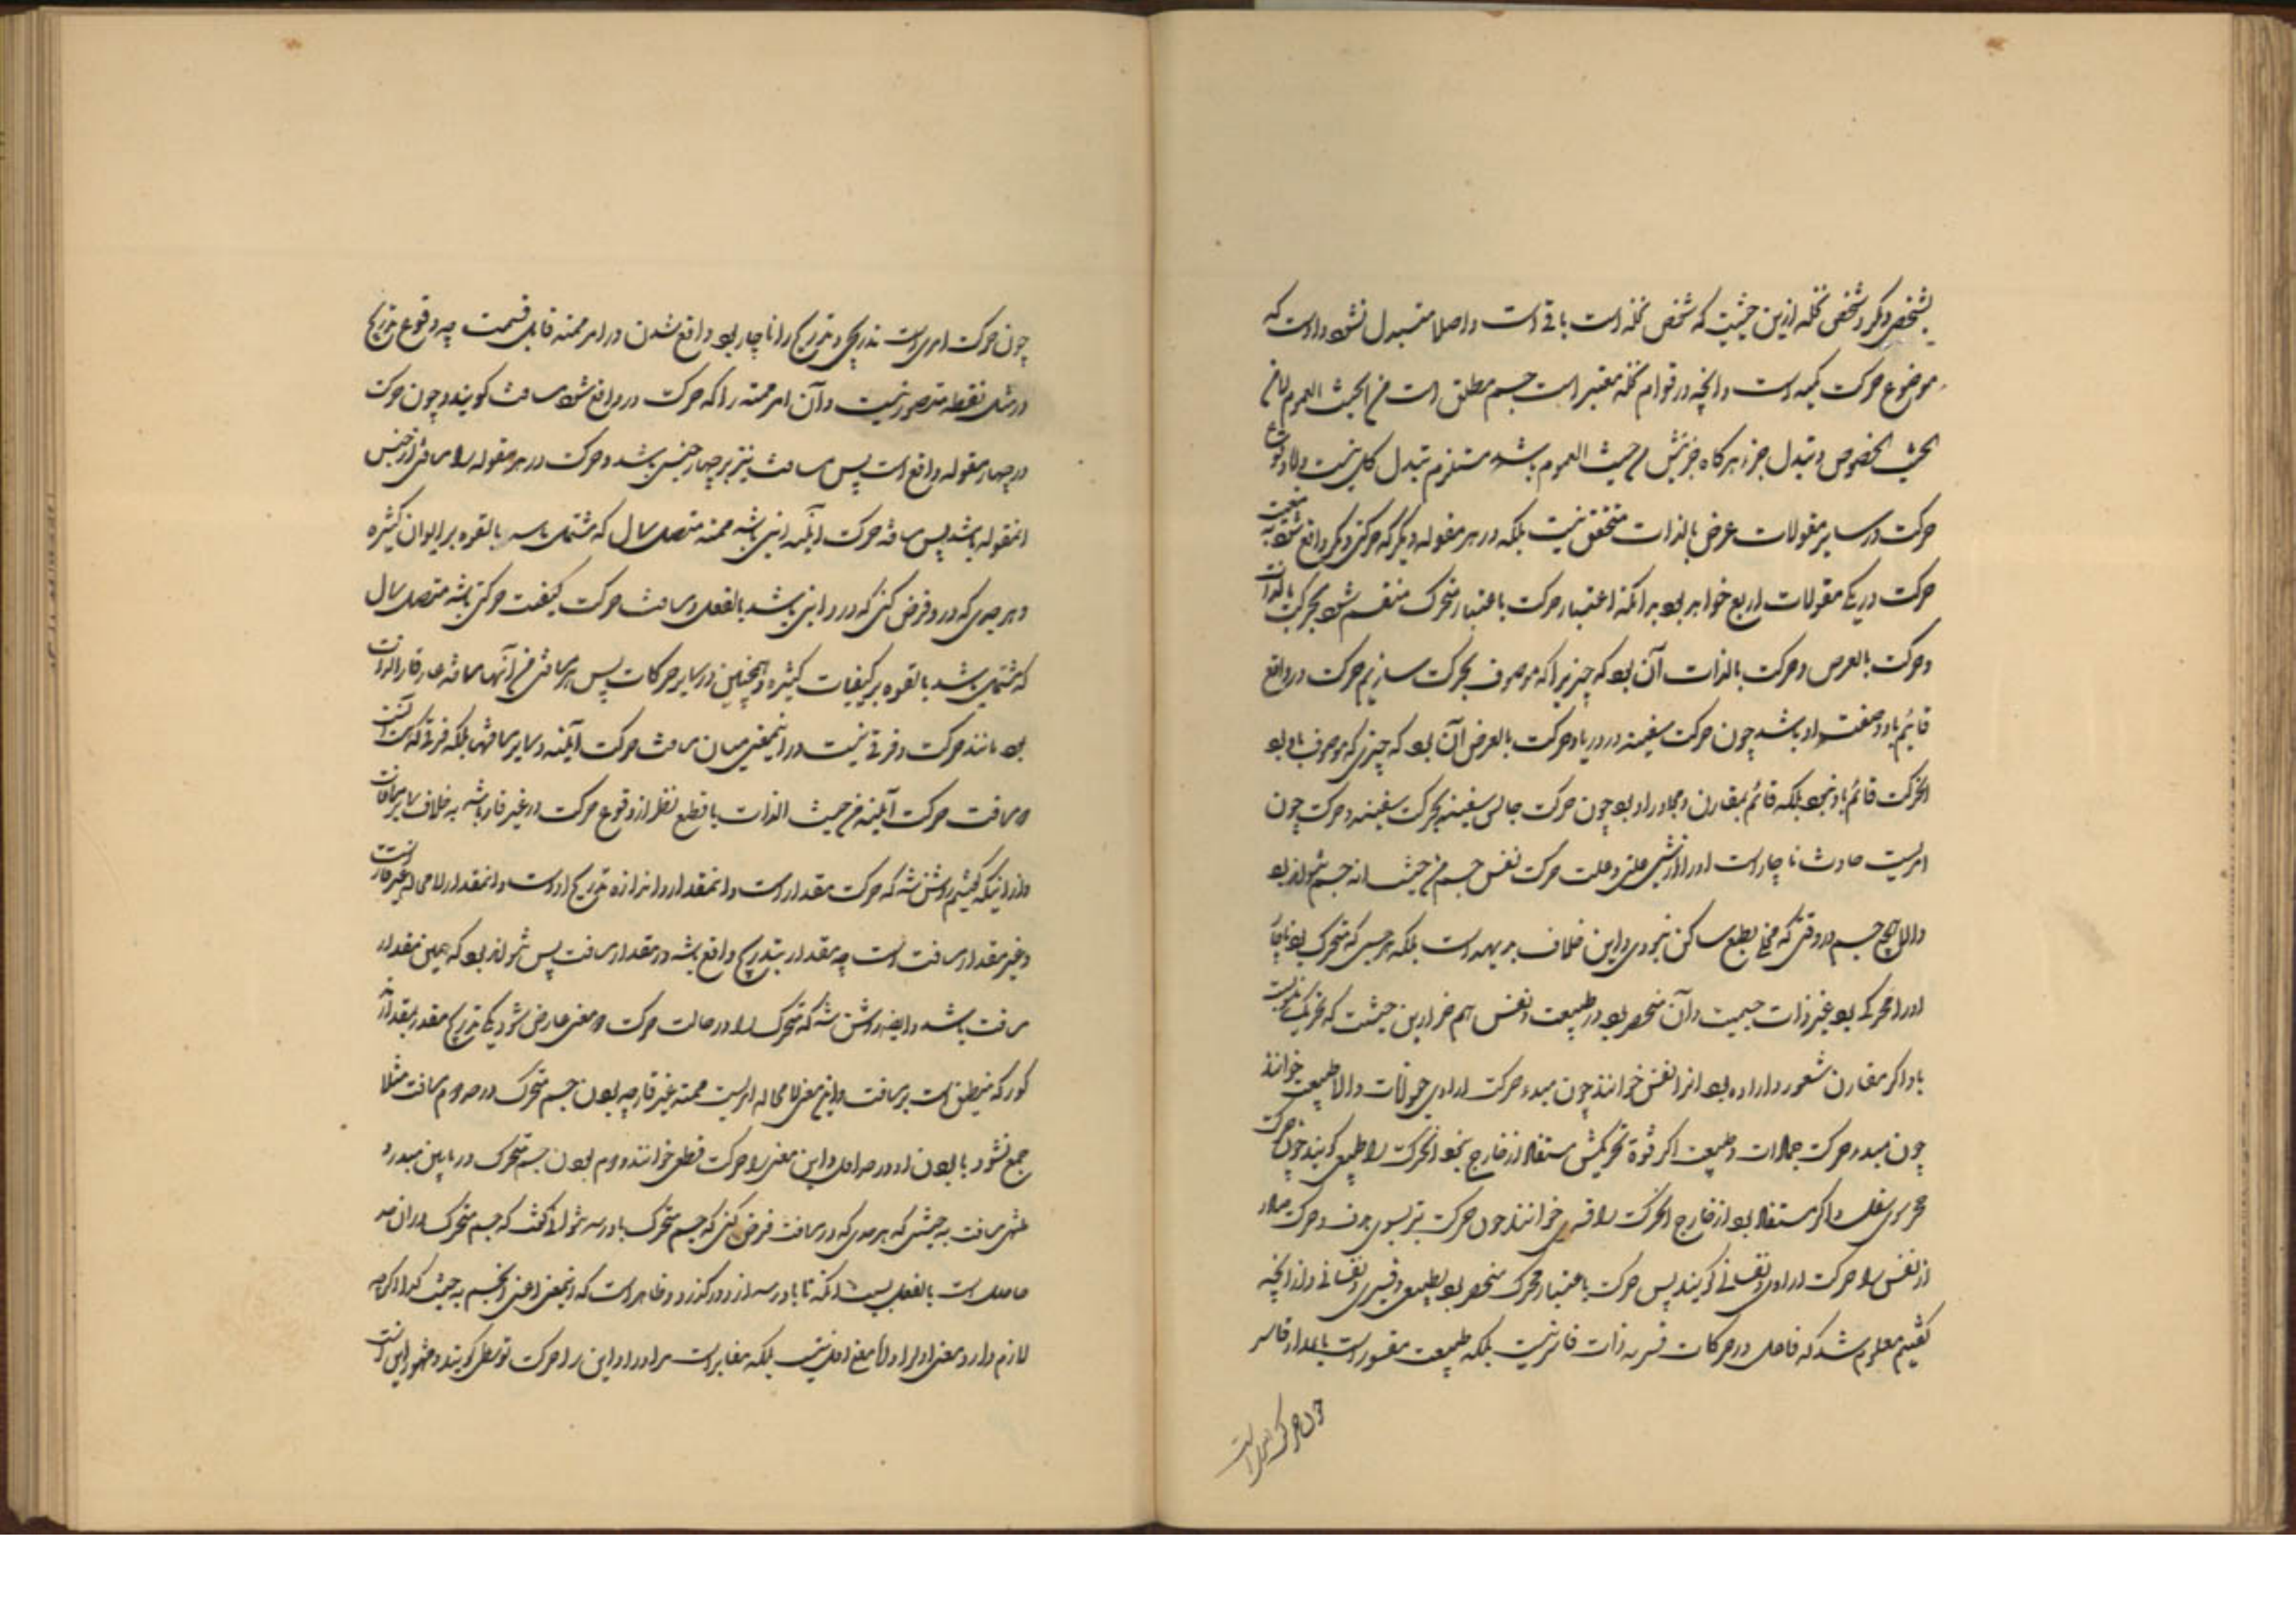 بشخص دیگر و شخص نخله ازین حیثیت که شخص نخله است باقی است و اصلا متبدل نشود و اوست که
موضوع حرکت کمیه است و آنچه در قوام نخله معتبر است جسم مطلق است من الحیث العموم لا من
الحیث الخصوص و تبدل جزء هرگاه جزئیتش من حیث العموم باشد مستلزم تبدل کل نیست و لا وقوع
حرکت در سایر مقولات عرض بالذات متحقق نیست بلکه در هر مقوله دیگر که حرکتی دیگر واقع شود به تبعیت
حرکت در یکی مقولات اربع خواهد بود بدانکه اعتبار حرکت باعتبار متحرک منقسم شود بحرکت بالذات
و حرکت بالعرض و حرکت بالذات آن بود که چیزیرا که موصوف بحرکت سازیم حرکت در واقع
قائم باو و صفت او باشد چون حرکت سفینه در دریا و حرکت بالعرض آن بود که چیزی که موصوف باو بود
الحرکت قائم باو نبود بلکه قائم بمقارن و مجاور او بود چون حرکت جالس سفینه بحرکت سفینه و حرکت چون
امریست حادث ناچار است او را از علتی و علت حرکت نفس جسم من حیث انه جسم نتواند بود
و الا هیچ جسم در وقتی که مخلی بطبع ساکن نبودی و این خلاف بدیهه است بلکه هر جسمی که متحرک بود ناچار
او را محرکی بود غیر ذات جسمیت و آن منحصر بود در طبیعت و نفس هم ازین حیثیت که تحریک
با او اگر مقارن شعور و اراده بود انرا نفس خوانند چون مبدء حرکت ارادی حیوانات و الا طبیعت خوانند
چون مبدء حرکت جمادات و طبیعت اگر قوة تحریکیش مستفاد از خارج نبود الحرکت را طبیعی گویند چون حرکت
حجر بسوی سفل و اگر مستفاد بود از خارج الحرکت را قسری خوانند چون حرکت تیر بسوی هدف و حرکت صادر
از نفس را حرکت ارادی و نفسانی گویند پس حرکت باعتبار محرک منحصر بود بطبیعی و قسری و نفسانی و از آنچه
گفتیم معلوم شد که فاعل در حرکات قسریه ذات قاسر نیست بلکه طبیعت مقسور است باعداد قاسر
چون حرکت امری است
چون حرکت امری است تدریجی و تدریج را ناچار بود واقع شدن در امر ممتد قابل قسمت چه وقوع تدریج
در مثل نقطه متصور نیست و آن امر ممتد را که حرکت در او واقع شود مسافت گویند و چون حرکت
در چهار مقوله واقع است پس مسافت نیز بر چهار جنس باشد و حرکت در هر مقوله را مسافتی از جنس
انمقوله باشد پس مسافة حرکت اینیه اینی باشد ممتد متصل سیال که مشتمل باشد بالقوه بر ایوان کثیره
و هر حدی که در او فرض کنی که در او اینی باشد بالفعل و مسافت حرکت کیفیت حرکتی باشد متصل سیال
که مشتمل باشد بالقوه بر کیفیات کثیره و همچنین در سایر حرکات پس هر مسافتی من آنها مسافة غیر قار الذات
بود مانند حرکت و فرقی نیست در اینمعنی میان مسافت حرکت اینیه و سایر مسافتها بلکه فرقی که هست آنست
که مسافت حرکت اینیه من حیث الذات با قطع نظر از وقوع حرکت در غیر قار باشد به خلاف سایر مسافات
و از اینکه گفتیم روشن شد که حرکت مقدار است و انمقدار و اندازه تدریج اوست و انمقدار لا محاله غیر قار است
و غیر مقدار مسافت است چه مقدار بتدریج واقع باشد در مقدار مسافت پس نتواند بود که همین مقدار
مسافت باشد و ایضا روشن شد که متحرک را در حالت حرکت دو معنی عارض شود یکی تدریج مقدر بمقدار
مذکور که منطبق است بر مسافت و این معنی لا محاله امریست ممتد غیر قار چه بودن جسم متحرک در حد دوم مسافت مثلا
جمع نشود با بودن او در حد اول و این معنی را حرکت قطعی خوانند دوم بودن جسم متحرک در مابین مبدء و
منتهی مسافت به حیثیتی که هر حدی که در مسافت فرض کنی که جسم متحرک باو رسد نتوان گفت که جسم متحرک در ان حد
حاصل است بالفعل پیش از آنکه تا باو رسد از او درگذرد و ظاهر است که اینمعنی اعنی الجسم به حیثیت کذا اگرچه
لازم دارد معنی اول را و لا معنی اول نیست بلکه مغایر است مر او را و این را حرکت توسطی گویند و مشهور این است